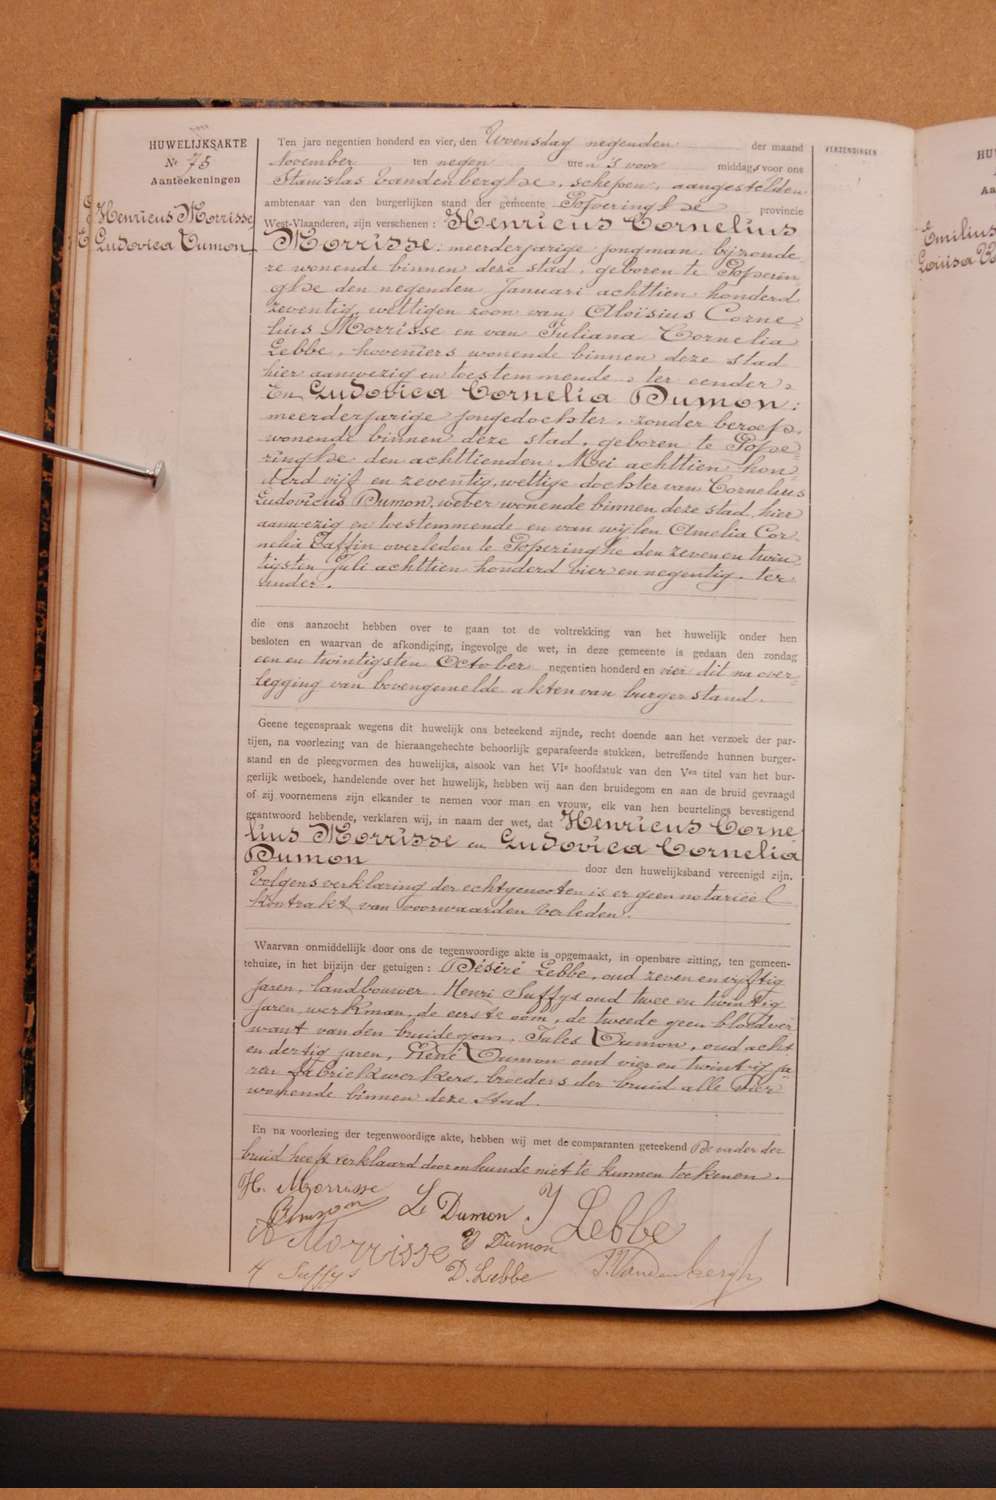 HUWELIJKSAKTE
Nr 75
Aanteekeningen
Henricus Morrisse
&
Ludovica Dumon
Ten jare negentien honderd en vier, den Woensdag negenden der maand
November ten negen ure n 's voor middags voor ons
Stanislas Vandenberghe, schepen, aangestelden
ambtenaar van den burgerlijken stand der gemeente Poperinghe provincie
West-Vlaanderen, zijn verschenen : Henricus Cornelius
Morrisse : meerderjarige jongman, bijzonde
re wonende binnen deze stad, geboren te Poperin
ghe den negenden Januari achttien honderd
zeventig, wettigen zoon van Aloisius Corne-
lius Morrisse en van Juliana Cornelia
Lebbe, hoveniers wonende binnen deze stad
hier aanwezig en toestemmende, ter eender,
En Ludovica Cornelia Dumon :
meerderjarige jongedochter, zonder beroep,
wonende binnen deze stad, geboren te Pope-
ringhe den achttienden Mei achttien hon
derd vijf en zeventig, wettige dochter van Cornelius
Ludovicus Dumon, wever wonende binnen deze stad, hier
aanwezig en toestemmende en van wijlen Amelia Cor-
nelia Taffin overleden te Poperinghe den zeven en twin
tigsten Juli achttien honderd vier en negentig, ter
ander.
die ons aanzocht hebben over te gaan tot de voltrekking van het huwelijk onder hen
besloten en waarvan de afkondiging, ingevolge de wet, in deze gemeente is gedaan den zondag
een en twintigsten October negentien honderd en vier dit na over-
legging van bovengemelde akten van burgerstand.
Geene tegenspraak wegens dit huwelijk ons beteekend zijnde, recht doende aan het verzoek der par-
tijen, na voorlezing van de hieraangehechte behoorlijk geparafeerde stukken, betreffende hunnen burger-
stand en de pleegvormen des huwelijks, alsook van het VIe hoofdstuk van den Ven titel van het bur-
gerlijk wetboek, handelende over het huwelijk, hebben wij aan den bruidegom en aan de bruid gevraagd
of zij voornemens zijn elkander te nemen voor man en vrouw, elk van hen beurtelings bevestigend
geantwoord hebbende, verklaren wij, in naam der wet, dat Henricus Corne
lius Morrisse en Ludovica Cornelia
Dumon door den huwelijksband vereenigd zijn.
Volgens verklaring der echtgenooten is er geen notarieel
kontrakt van voorwaarden verleden.
Waarvan onmiddellijk door ons de tegenwoordige akte is opgemaakt, in openbare zitting, ten gemeen-
tehuize, in het bijzijn der getuigen : Désiré Lebbe, oud zeven en vyftig
jaren, landbouwer, Henri Suffys oud twee en twintig
jaren werkman, de eerste oom, de tweede geen bloedver
want van den bruidegom, Jules Dumon, oud acht
en dertig jaren, René Dumon oud vier en twintig ja-
ren fabriekwerkers, broeders der bruid alle vier
wonende binnen deze stad.
En na voorlezing der tegenwoordige akte, hebben wij met de comparanten geteekend De vader der
bruid heeft verklaard door onkunde niet te kunnen teekenen.
H. Morrisse
L Dumon
J Lebbe
A Morrisse
Dumon
H Suffys
D. Lebbe
S. Vandenberghe
VERZENDINGEN
Emilius
Louisa